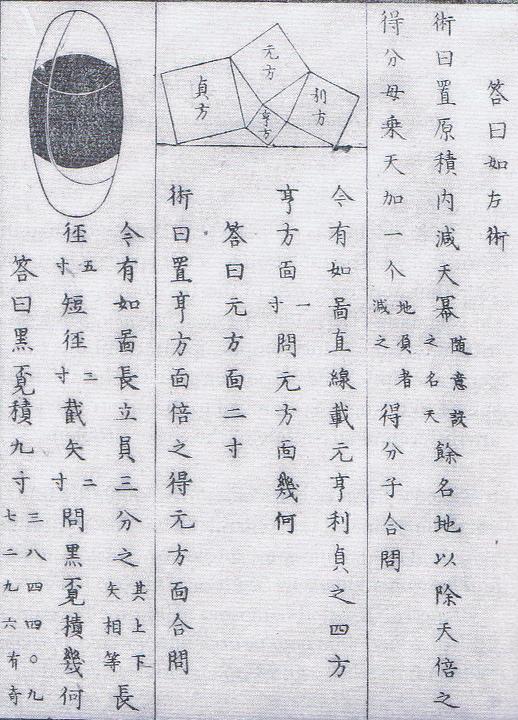 答曰如左術
術曰置原積内減天冪隨意設之名天餘名地以除天倍之
得分母乗天加一个地負者減之得分子合問
利方
元方
亨方
貞方
今有如啚直線載元亨利貞之四方
亨方面一寸問元方面幾何
答曰元方面二寸
術曰置亨方面倍之得元方面合問
今有如啚長立員三分之其上下矢相等長
徑五寸短徑三寸截矢二寸問黒覔積幾何
答曰黒覔積九寸三八四四〇九七二九六有奇